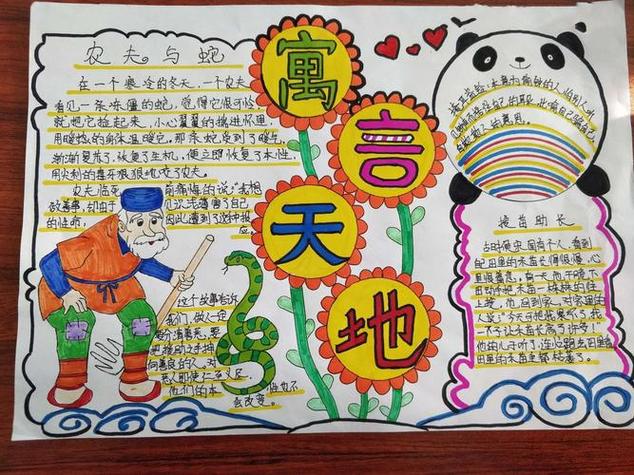 农夫与蛇
在一个寒冷的冬天,一个农夫
看见一条冻僵的蛇,觉得它很可怜
就把它拾起来,小心翼翼的揣进怀里,
用暖热的身体温暖它,那条蛇受到了暖气,
渐渐复苏了,恢复了生机,便立即恢复了本性,
用尖利的毒牙狠狠地咬了农夫。
农夫临死前痛悔的说:我想
做善事,却由于见识浅薄害了自己
的性命,因此遭到了这种报
应
这个故事告诉
我们,做人一定
要分清善恶,要
把援助之手伸
向善良的人,对
恶人即使仁至义尽,
他们的本性也不
会改变。
寓
言
天
地
揠苗助长
古时候宋国有个人,看到
自己田里的禾苗长得很慢,心
里很着急,有一天他干脆下
田动手把禾苗一株株的往
上拔,他回到家,对家里的
人说:今天可把我累坏了,我
一下子让禾苗长高了许多!
他的儿子听了,连忙跑去田里
田里的禾苗全都枯萎了。